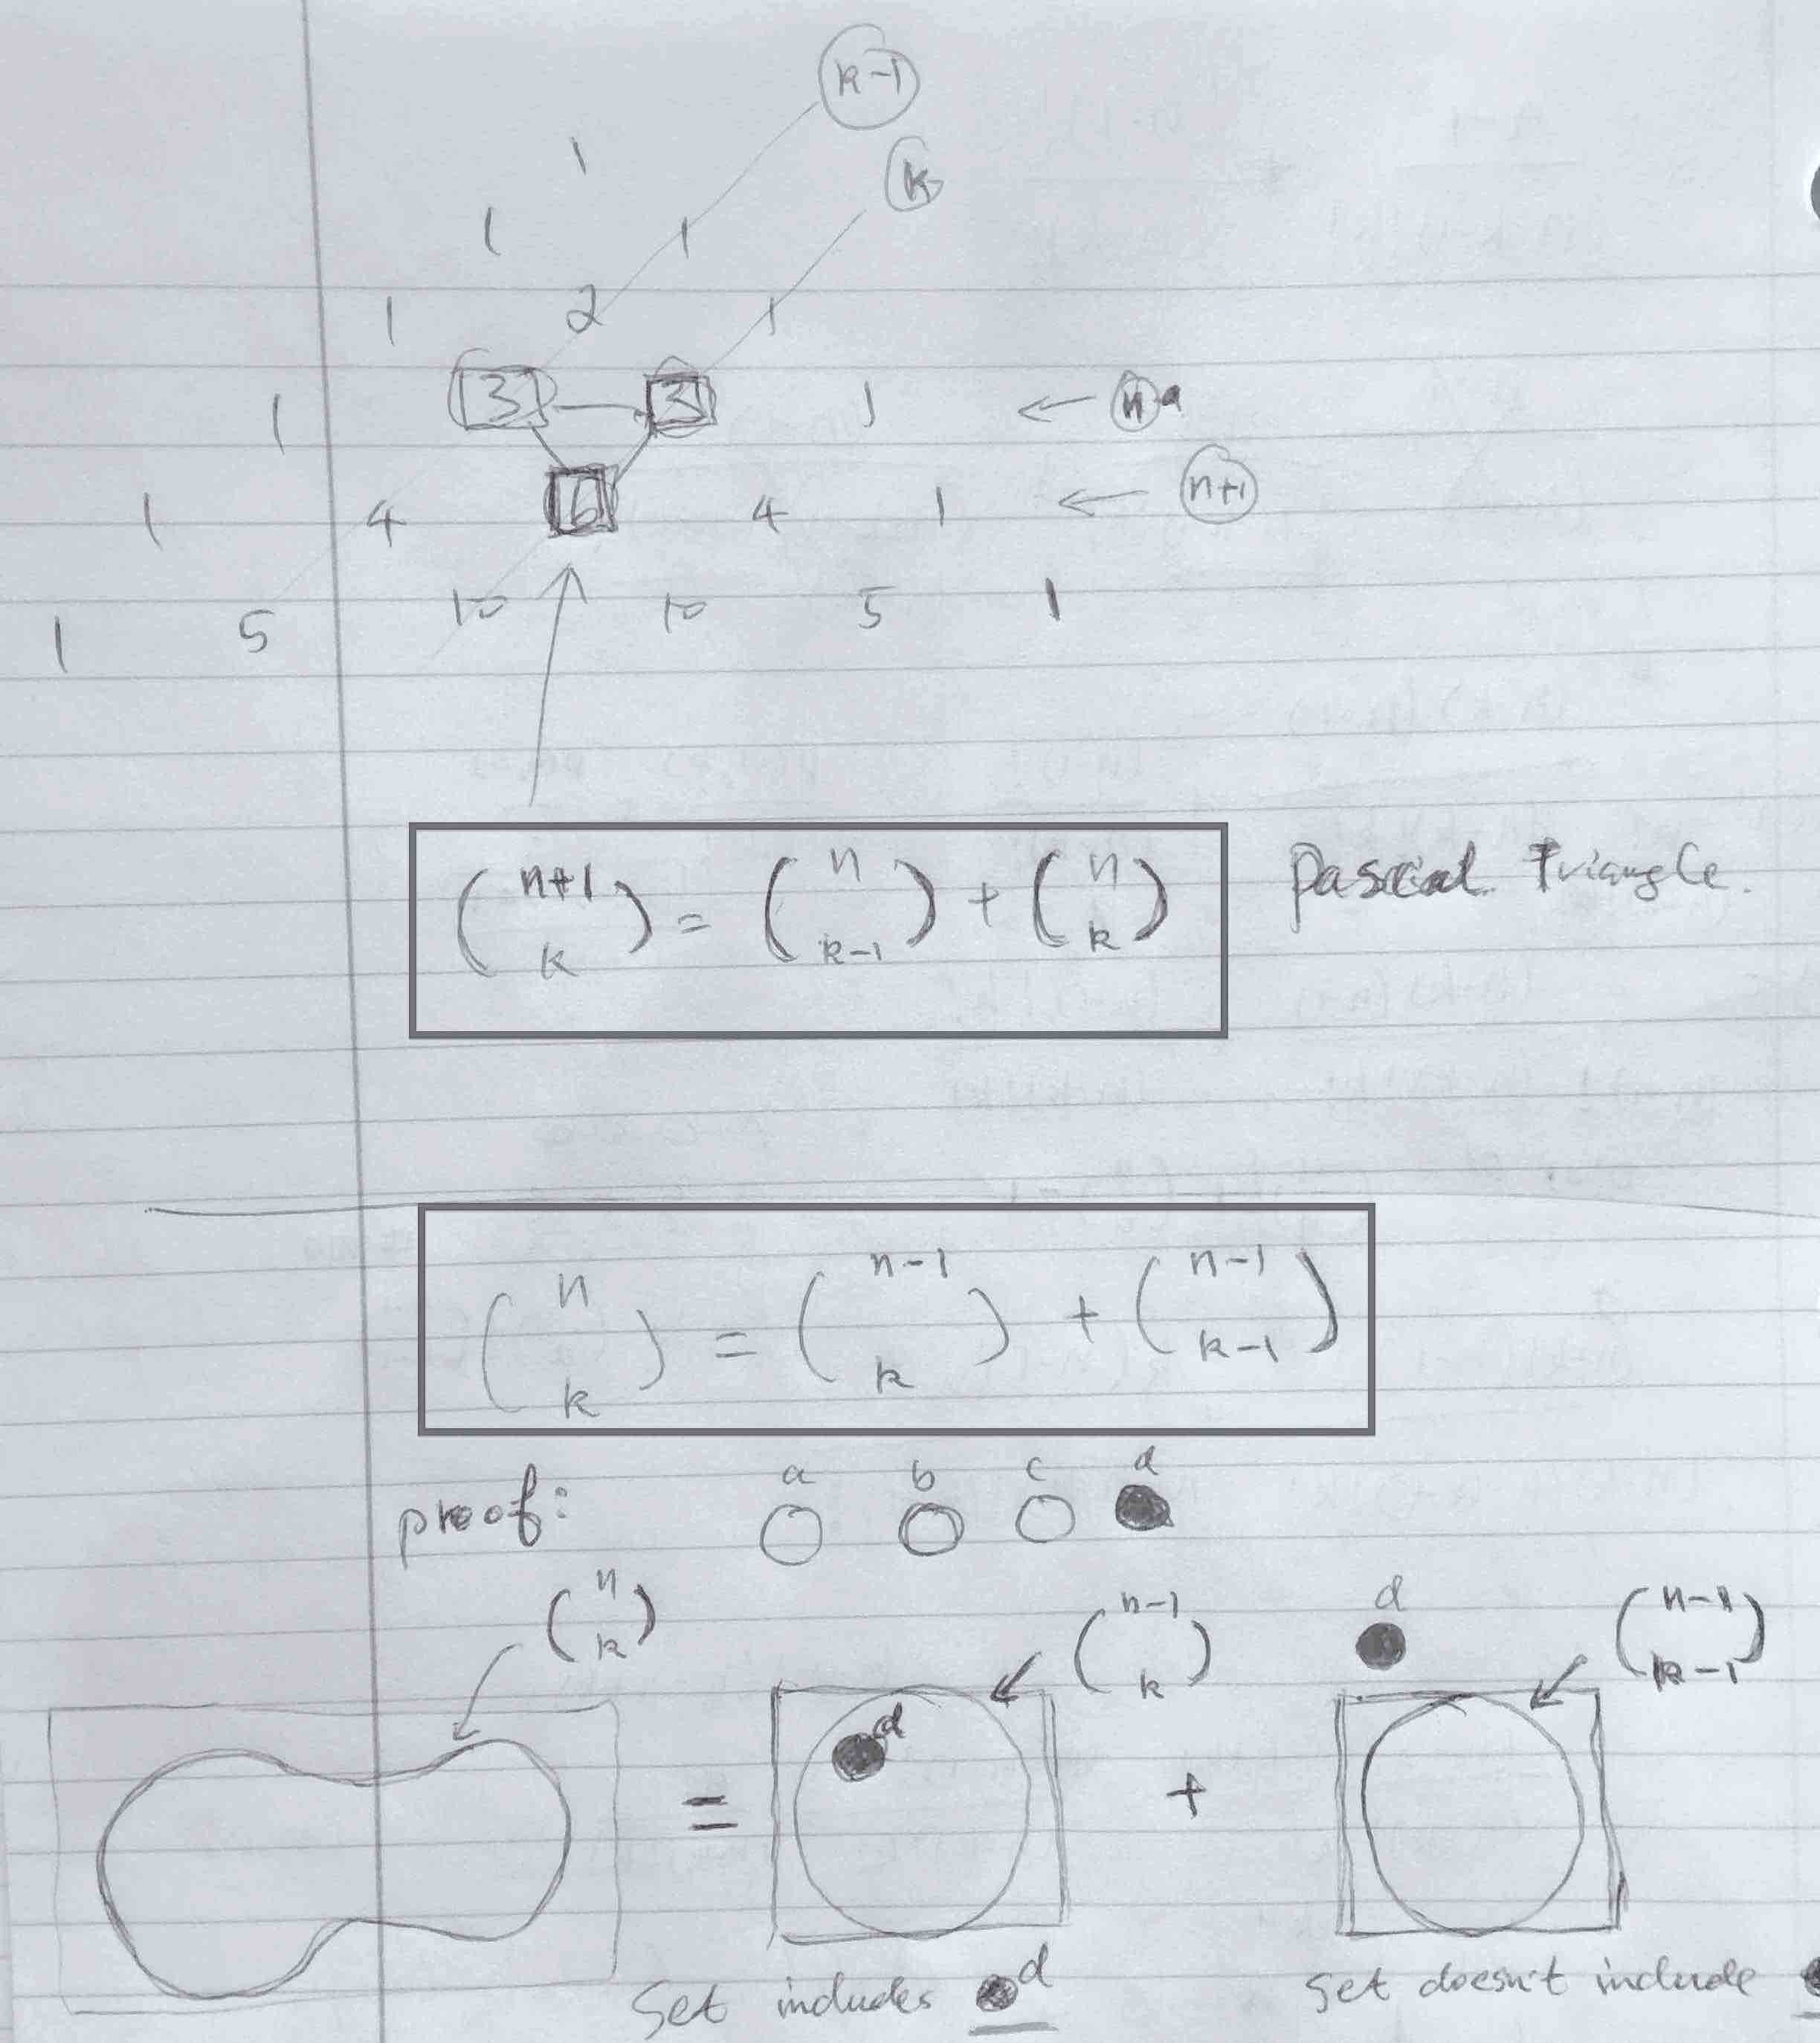 k-1
1 k
1 1
1 2 1
1 3 3 1 ← n
1 4 6 4 1 ← n+1
1 5 10 10 5 1
(n+1 k) = (n k-1) + (n k) Pascal Triangle.
(n k) = (n-1 k) + (n-1 k-1)
a b c d
proof:
(n k) (n-1 k) d (n-1 k-1)
d
= +
Set includes d Set doesn't include